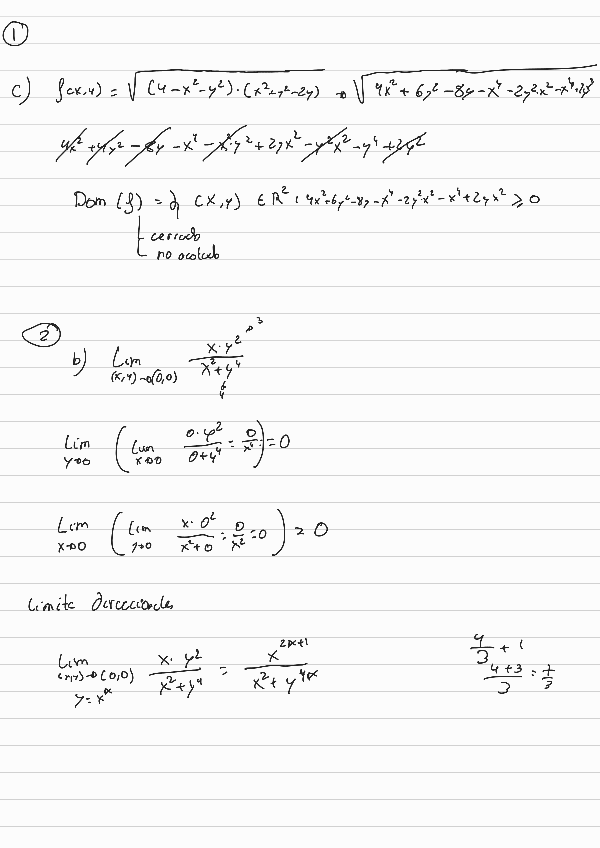 1
c) f(x,y) = √((4-x²-y²)·(x²+y²-2y)) → √(4x²+6y²-8y-x⁴-2y²x²-x⁴+2y³
4x² +4y² -8y -x⁴ -x²y² +2yx² -y²x² -y⁴ +2y²
Dom (f) = { (x,y) ∈ ℝ² : 4x²+6y²-8y-x⁴-2y²x²-x⁴+2yx² ≥ 0
cerrado
no acotado
2
→ 3
b) Lim (x,y)→(0,0) x·y² / x²+y⁴
4
Lim y→0 ( Lim x→0 0·y² / 0+y⁴ = 0/x⁴ ) = 0
Lim x→0 ( Lim y→0 x·0² / x²+0 = 0/x² = 0 ) = 0
Limite direccionales
Lim (x,y)→(0,0) y=x^α x·y² / x²+y⁴ = x^(2α+1) / x²+y^(4α)
4/3 + 1
4+3 / 3 = 7/3